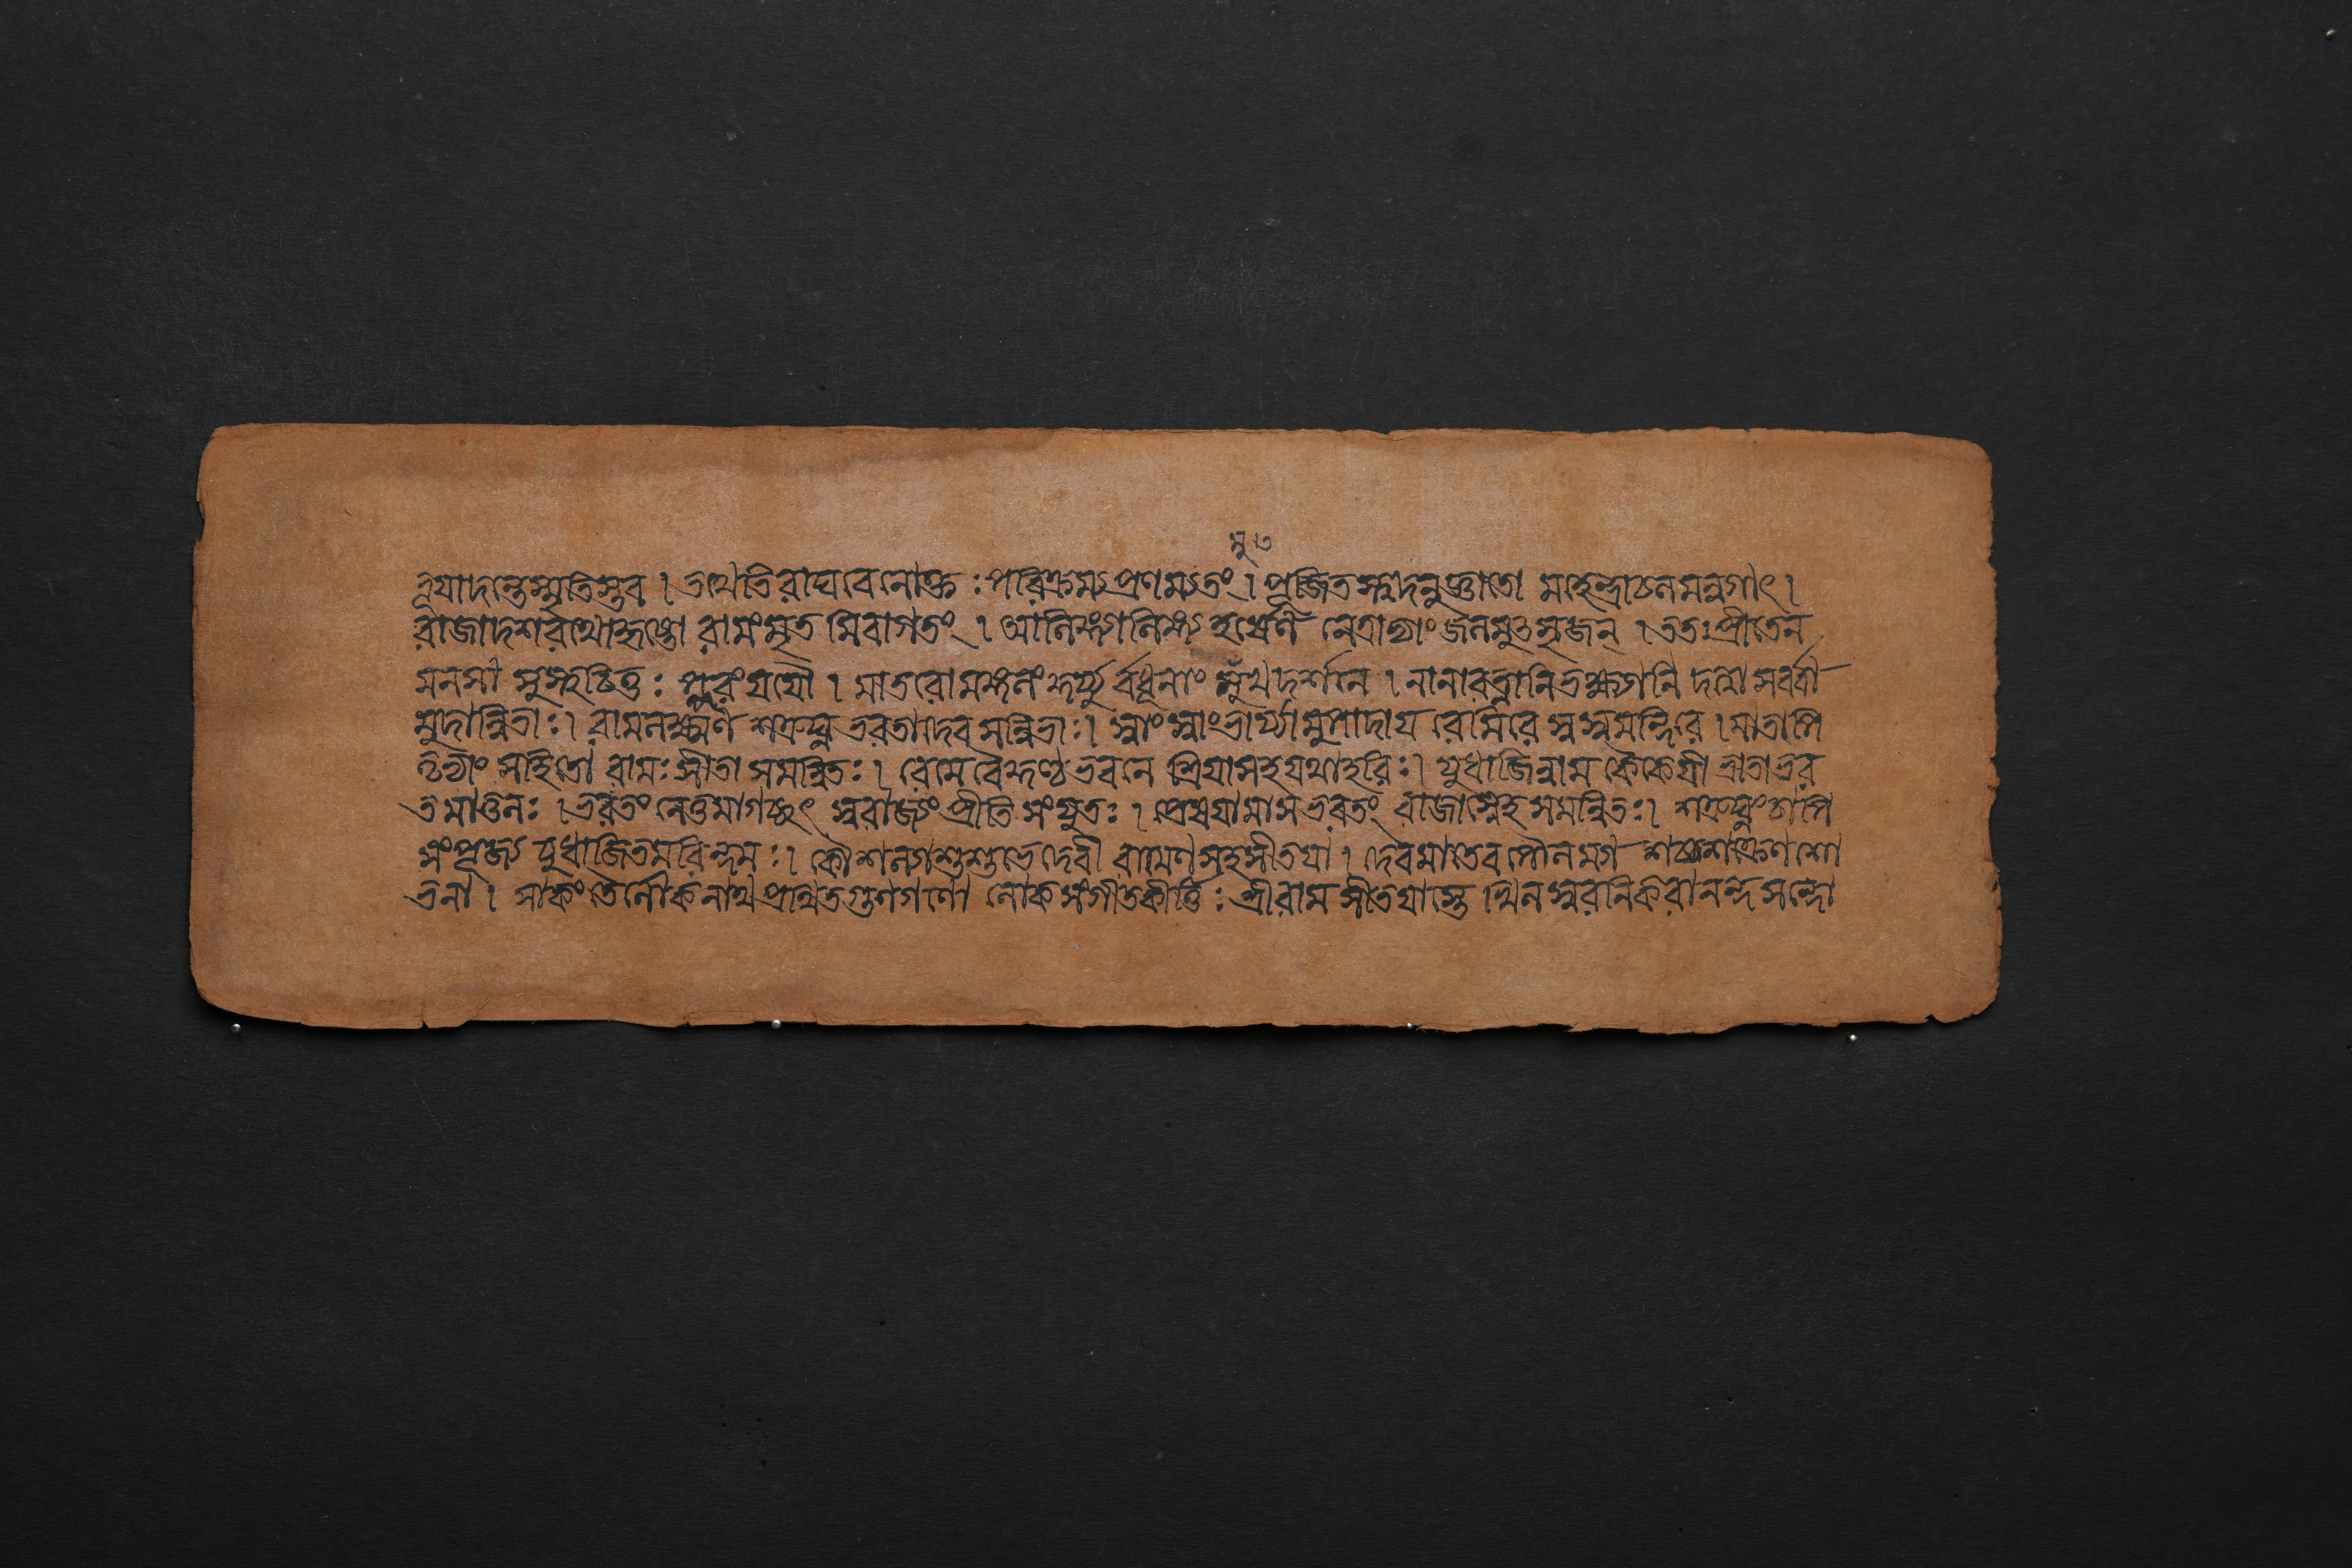 ভূযাদন্তেস্মৃতিস্তব । তথেতিরাঘবেনোক্ত : পরিক্রম্যপ্রণম্যতং । পূজিতস্তদনুজ্ঞাতো মহেন্দ্রাচলমন্বগাৎ ।
রাজাদশরথোহৃষ্টো রামংমৃত মিবাগতং । আলিঙ্গ্যালিঙ্গ্য হর্ষেণ নেত্রাভ্যাং জলমুৎসৃজন্ । ততঃপ্রীতেন
মনসা সুস্থচিত্ত : পুরংযযৌ । মাতরোমঙ্গলং র্বধূনাং মুখদর্শনে । নানারত্নানি সর্ব্বা
মুদান্বিতা:। রামলক্ষ্মণ শত্রুঘ্ন ভরতাদেব সন্মিতা:। স্বাংস্বাংভার্য্যামুপাদায রেমিরে স্বস্বমন্দিরে । মাতাপি
তৃভ্যাং সহিতো রাম:সীতা সমন্বিত: । রেমেবৈকুণ্ঠভবনে শ্রিযাসহযথাহরি:। যুধাজিন্নাম কৈকেযী ভ্রাতাভর
তমাতুল: । ভরতং নেতুমাগচ্ছৎ স্বরাজ্যং প্রীতি সংযুত: । প্রেষযামাসভরতং রাজাস্নেহ সমন্বিত:। শত্রুঘ্নংচাপি
সংপূজ্য যুধাজিতমরিন্দম :। কৌশল্যাশুশুভেদেবী রামেণসহসীতযা । দেবমাতেব শক্রেণ শো
ভনা । নাথপ্রথিতগুণগণো লোকসংগীতকীর্ত্তি : শ্রীরাম সীতযাস্তে নিকরানন্দ সন্দো